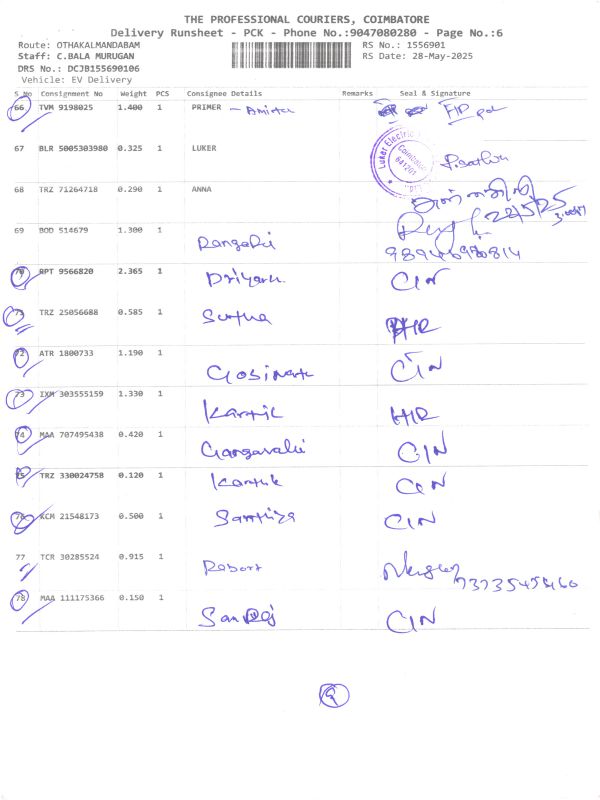 THE PROFESSIONAL COURIERS, COIMBATORE
Delivery Runsheet - PCK - Phone No.:9047080280 - Page No.:6
Route: OTHAKALMANDABAM RS No.: 1556901
Staff: C.BALA MURUGAN RS Date: 28-May-2025
DRS No.: DCJB155690106
Vehicle: EV Delivery
S No Consignment No Weight PCS Consignee Details Remarks Seal & Signature
66 TVM 9198025 1.400 1 PRIMER
Luker Electric
Coimbatore
641201
67 BLR 5005303980 0.325 1 LUKER
68 TRZ 71264718 0.290 1 ANNA
69 BOD 514679 1.300 1
70 RPT 9566820 2.365 1 Priyanka CIN
TRZ 25056688 0.585 1 H/R
72 ATR 1800733 1.190 1 Gobinath CIN
73 IXM 303555159 1.330 1 Kartik H/R
74 MAA 707495438 0.420 1 CIN
75 TRZ 330024758 0.120 1 Kartik CIN
76 KCM 21548173 0.500 1 CIN
77 TCR 30285524 0.915 1 Robort
78 MAA 111175366 0.150 1 CIN
9